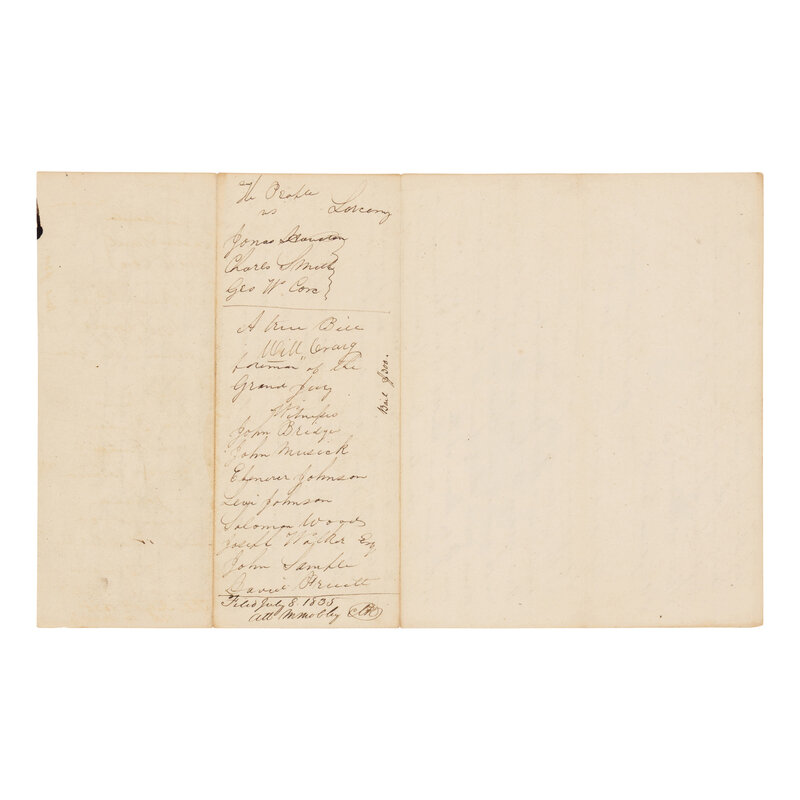 The People
vs Larceny
Jonas
Charles Smith
Geo W. Cox
A true Bill
Will Craig
foreman of the
Grand Jury
Witnesses
John Bridge
John Musick
Ebenezer Johnson
Levi Johnson
Solomon Woods
Joseph Walker Esq
John Sample
David Pruitt
Filed July 8. 1835
Att Mobley Clk
Bail $300.